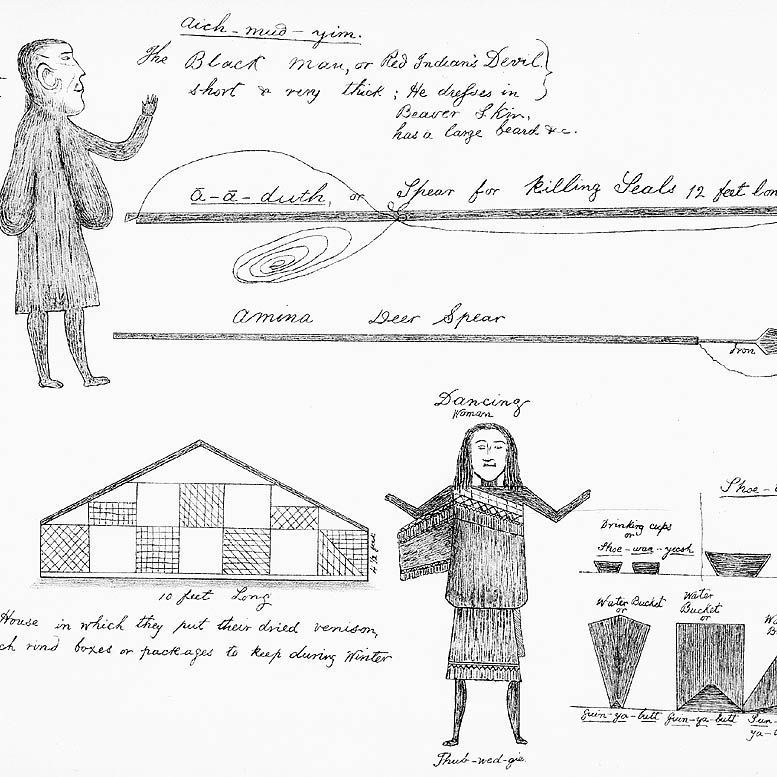 Aich-mud-yim.
The Black man, or Red Indian's Devil
short & very thick; He dresses in
Beaver Skin,
has a large beard &c.
ā-ā-duth, or Spear for killing Seals 12 feet lon
Amina Deer Spear
Iron
Dancing
Woman
Shoe-
Drinking cups
or
Shoe-wan-yeesh
2½ feet
10 feet Long
House in which they put their dried venison,
ch rind boxes or packages to keep during Winter
Water Bucket
or
Water
Bucket
or
Wa
B
Guin-ya-butt
Guin-ya-butt
ya-
Thub-wed-gie